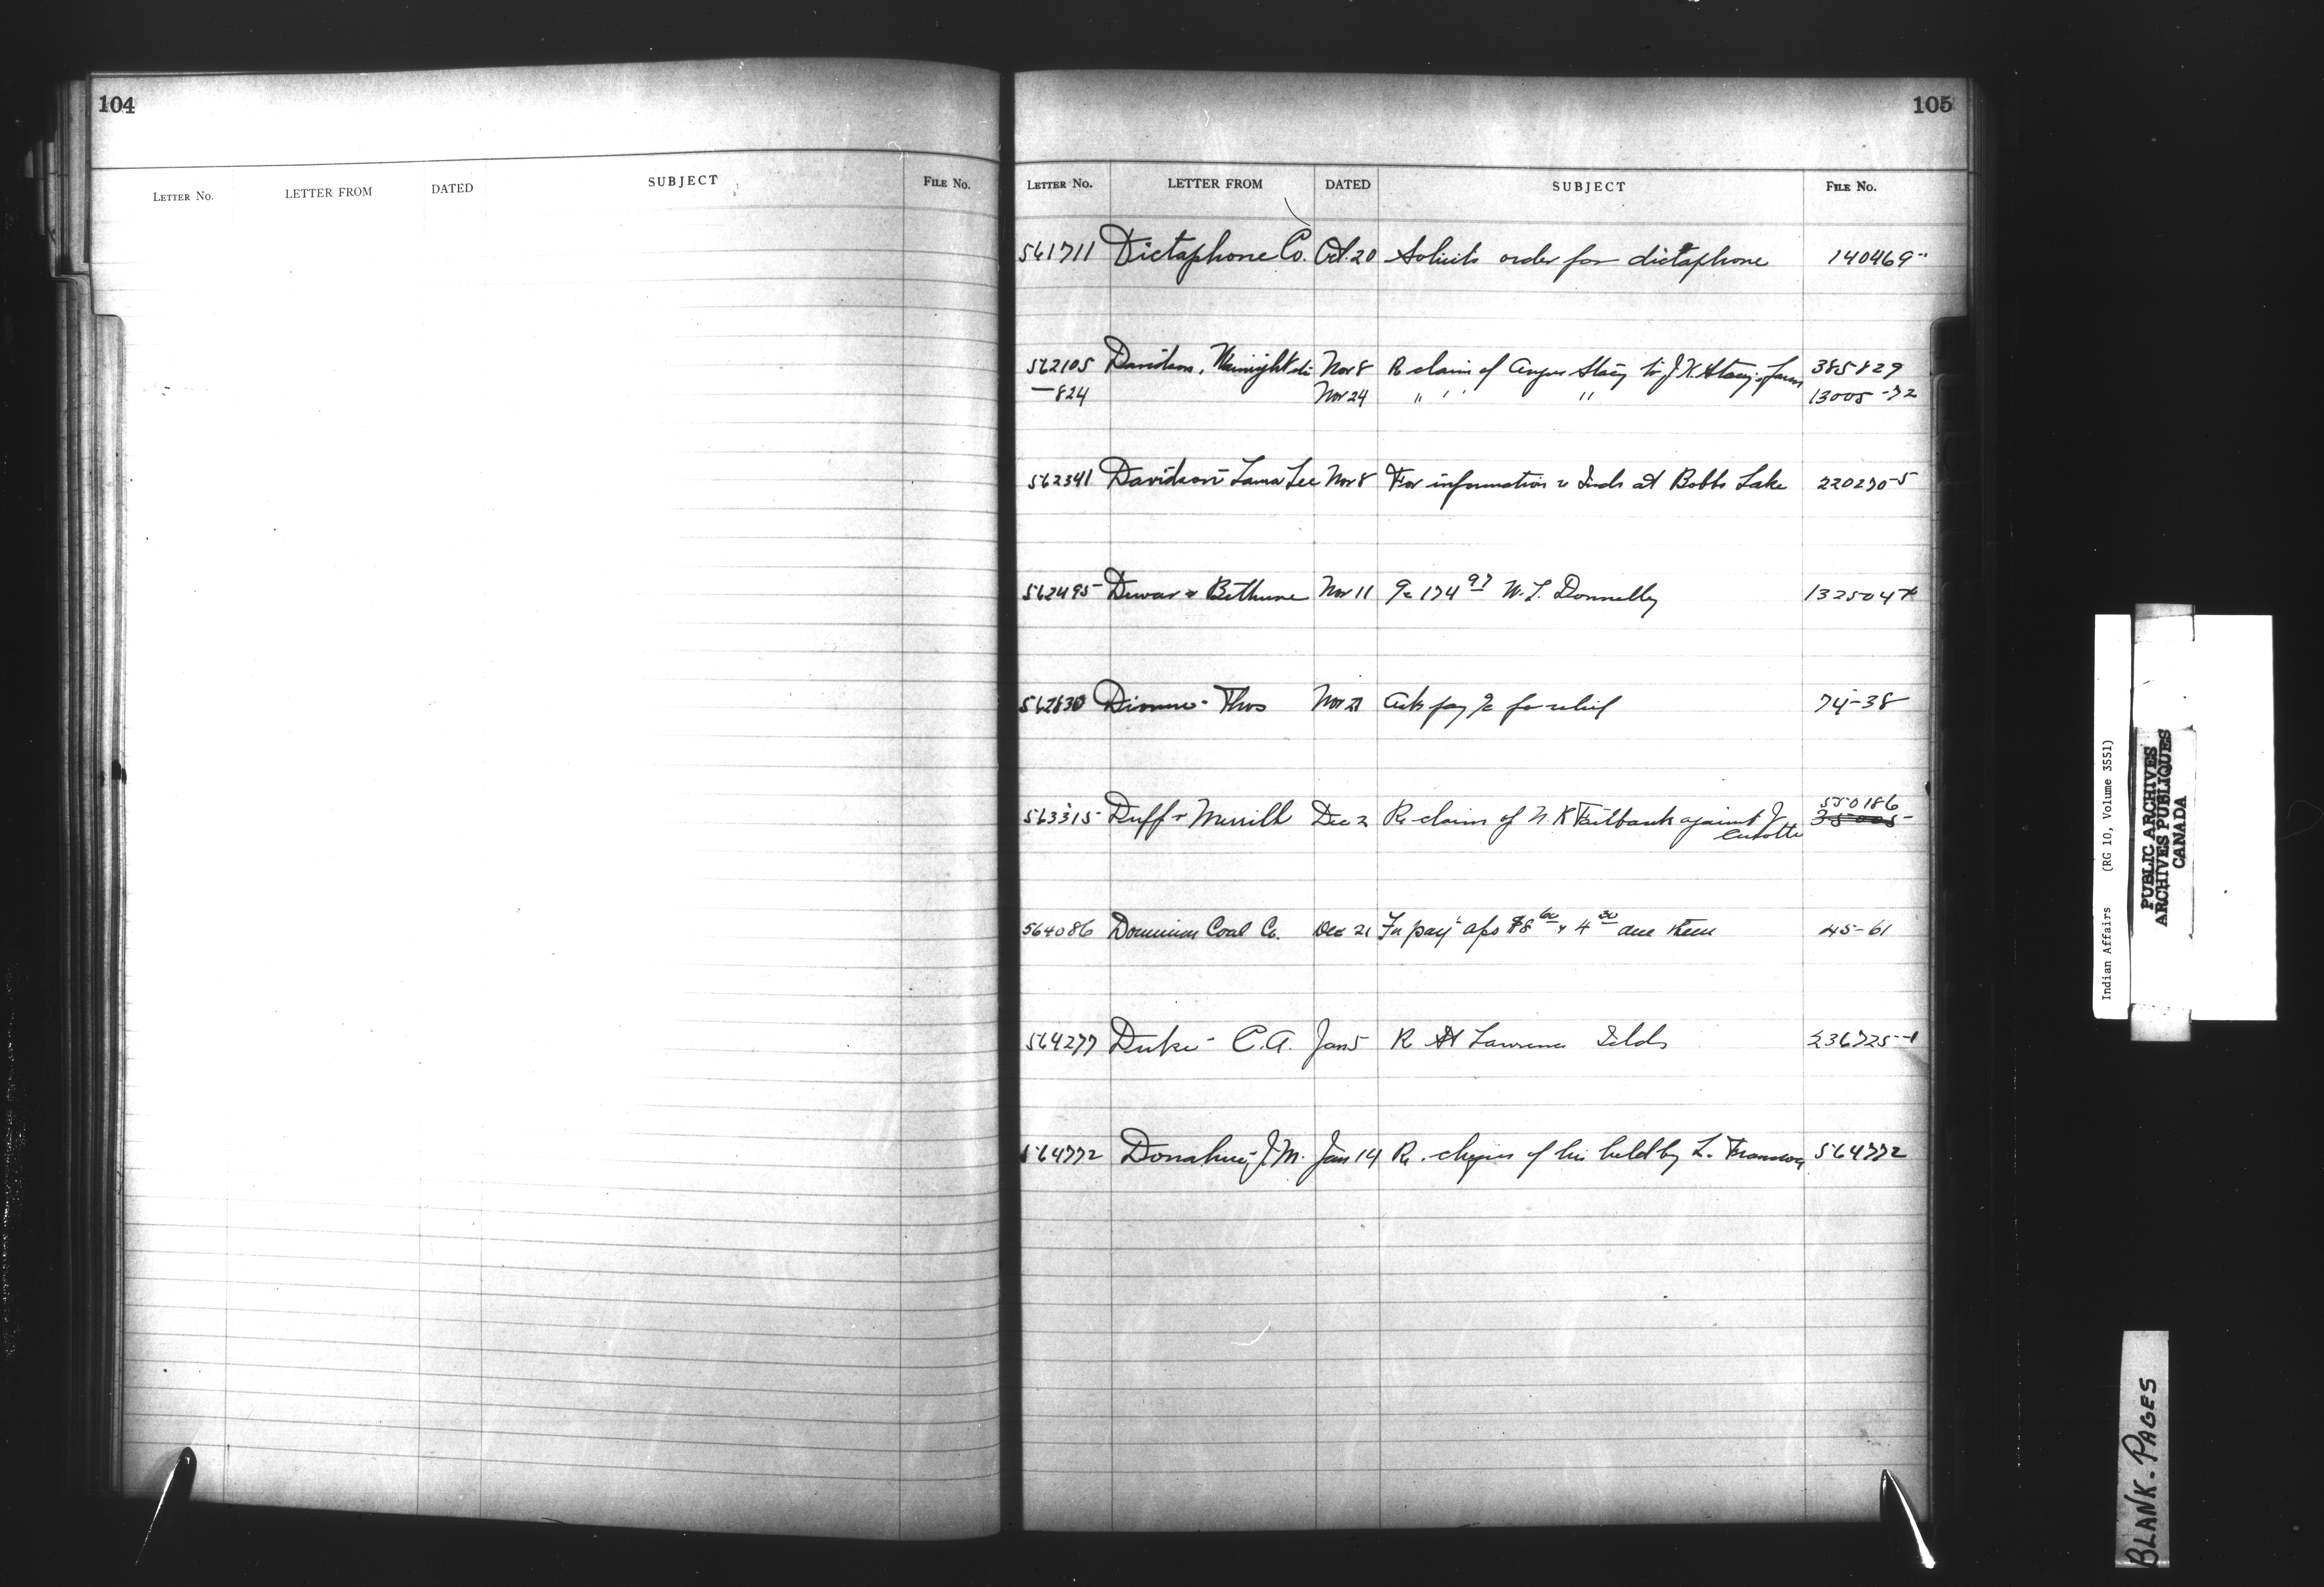 104
LETTER NO. LETTER FROM DATED SUBJECT FILE NO.
105
LETTER NO. LETTER FROM DATED SUBJECT FILE NO.
561711 Dictaphone Co. Oct. 20 Solicits order for dictaphone 140469
562105 Davidson, Nov 8 Re claim of Angus Stacy to J.K. Stacy's farm 385829
—824 Nov 24 " " " 13005-72
562341 Davidson Lee Nov 8 For information re Inds at Bobbs Lake 220270-5
562495 Dewar & Bethune Nov 11 174 97 W. J. Donnelly
562830 Thos Nov 21 Ask pay for relief 74-38
563315 Duff & Merrill Dec 2 Re claim of N. K. against J. 550186
564086 Dominion Coal Co. Dec 21 For pay't 60 & 4 30 due Keen 45-61
564277 Duke - C.A. Jan 5 Re St Lawrence Islds 236725-1
564772 Donahue, J.M. Jan 14 Re. of his held by L. 564772
Indian Affairs (RG 10, Volume 3551)
PUBLIC ARCHIVES
ARCHIVES PUBLIQUES
CANADA
BLANK-PAGES